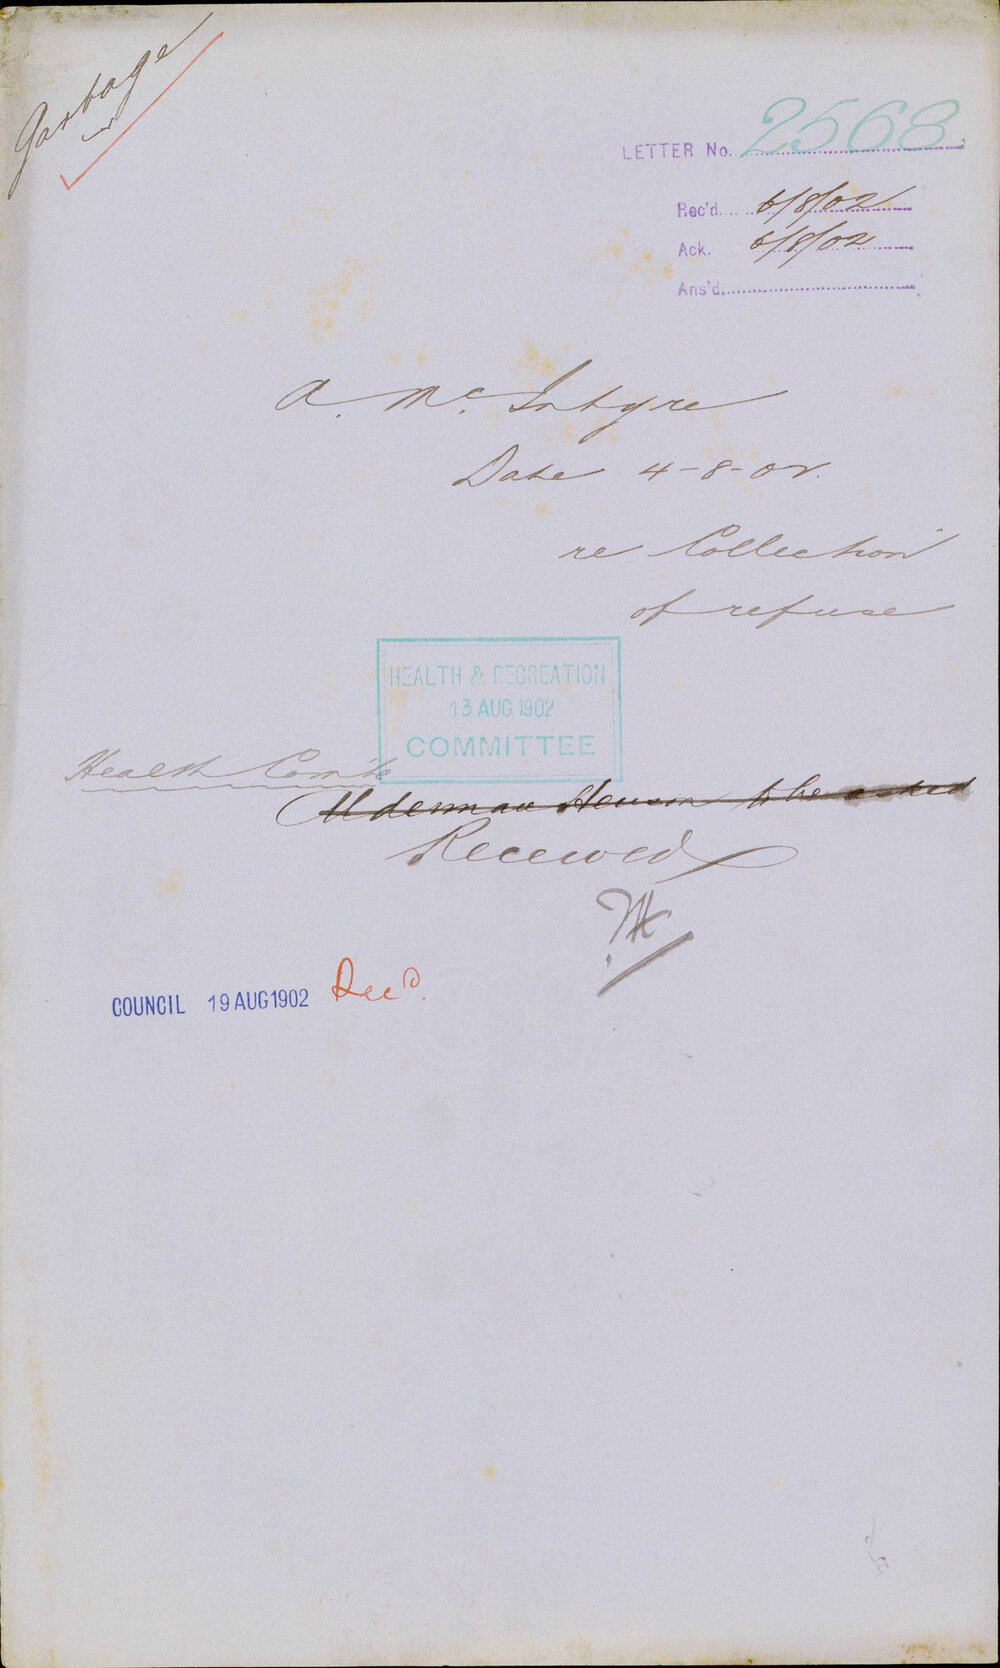 Garbage
LETTER No. 2568
Rec'd. 6/8/02
Ack. 6/8/02
Ans'd.
A. Mc. Intyre
Date 4-8-02.
re Collection
of refuse
HEALTH & RECREATION
13 AUG 1902
COMMITTEE
Health Com'te
Alderman to be asked
Received
COUNCIL 19 AUG 1902 Rec'd.